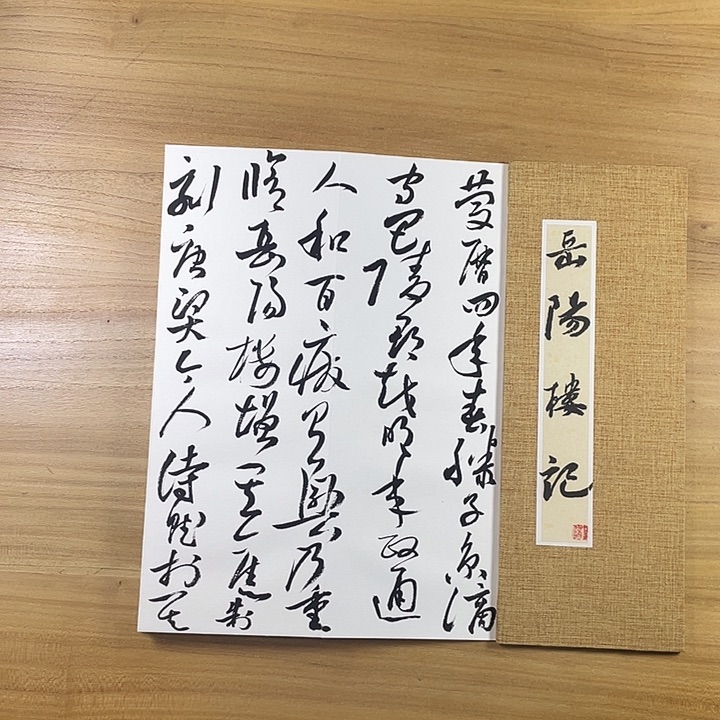 岳陽樓記
慶曆四年春滕子京謫
守巴陵郡越明年政通
人和百廢具興乃重
脩岳陽樓增其舊制
刻唐賢今人詩賦於其